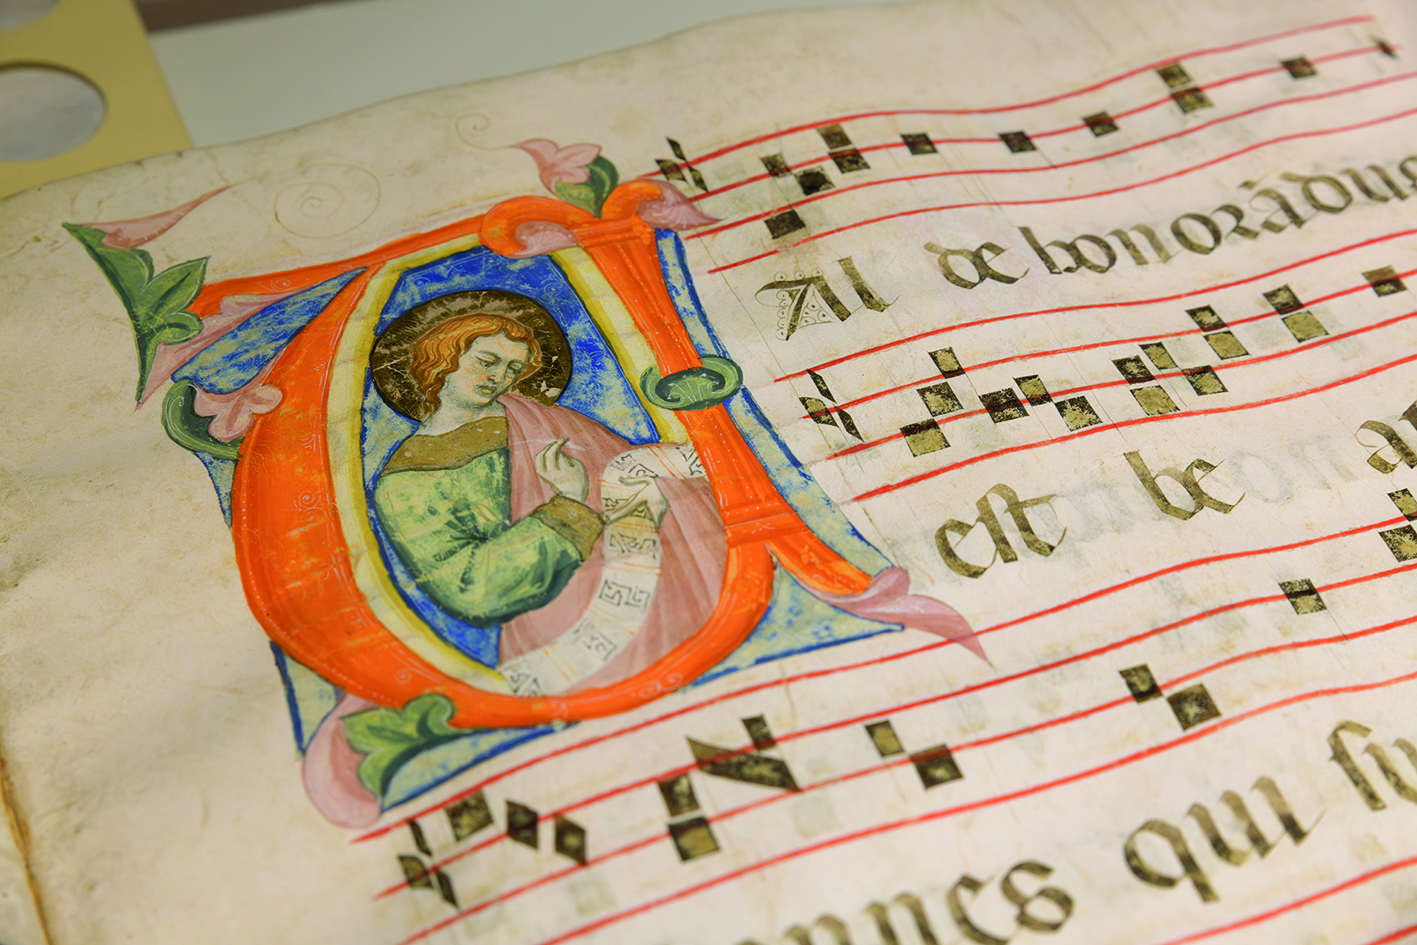 VAl de honorādus
est be a
nnes qui ſu